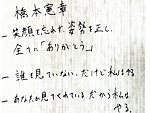 橋本憲章
一 笑顔を忘れず、姿勢を正し、
全てに「ありがとう」
一 誰も見ていない、だけど私はやる
一 あなたが見てくれている だから私は
やる。